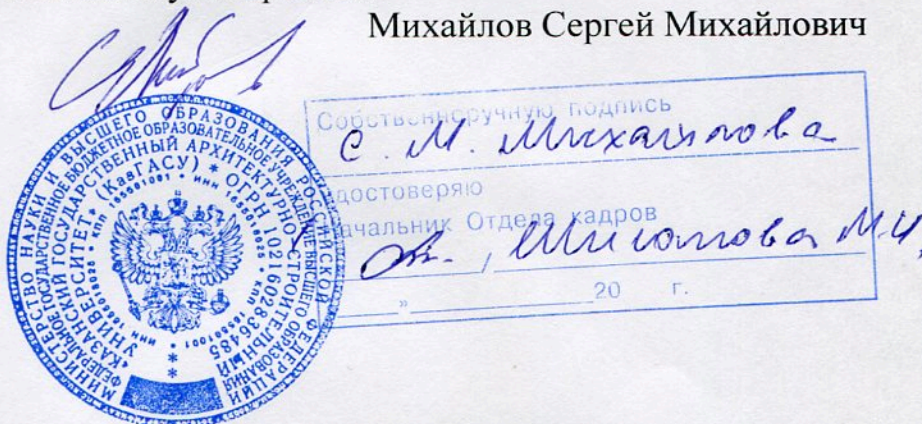 Михайлов Сергей Михайлович
Собственноручную подпись
С. М. Михайлова
удостоверяю
Начальник Отдела кадров
20 г.
МИНИСТЕРСТВО НАУКИ И ВЫСШЕГО ОБРАЗОВАНИЯ РОССИЙСКОЙ ФЕДЕРАЦИИ
ФЕДЕРАЛЬНОЕ ГОСУДАРСТВЕННОЕ БЮДЖЕТНОЕ ОБРАЗОВАТЕЛЬНОЕ УЧРЕЖДЕНИЕ ВЫСШЕГО ОБРАЗОВАНИЯ
«КАЗАНСКИЙ ГОСУДАРСТВЕННЫЙ АРХИТЕКТУРНО-СТРОИТЕЛЬНЫЙ
УНИВЕРСИТЕТ» (КазГАСУ) * ОГРН 1021602836485